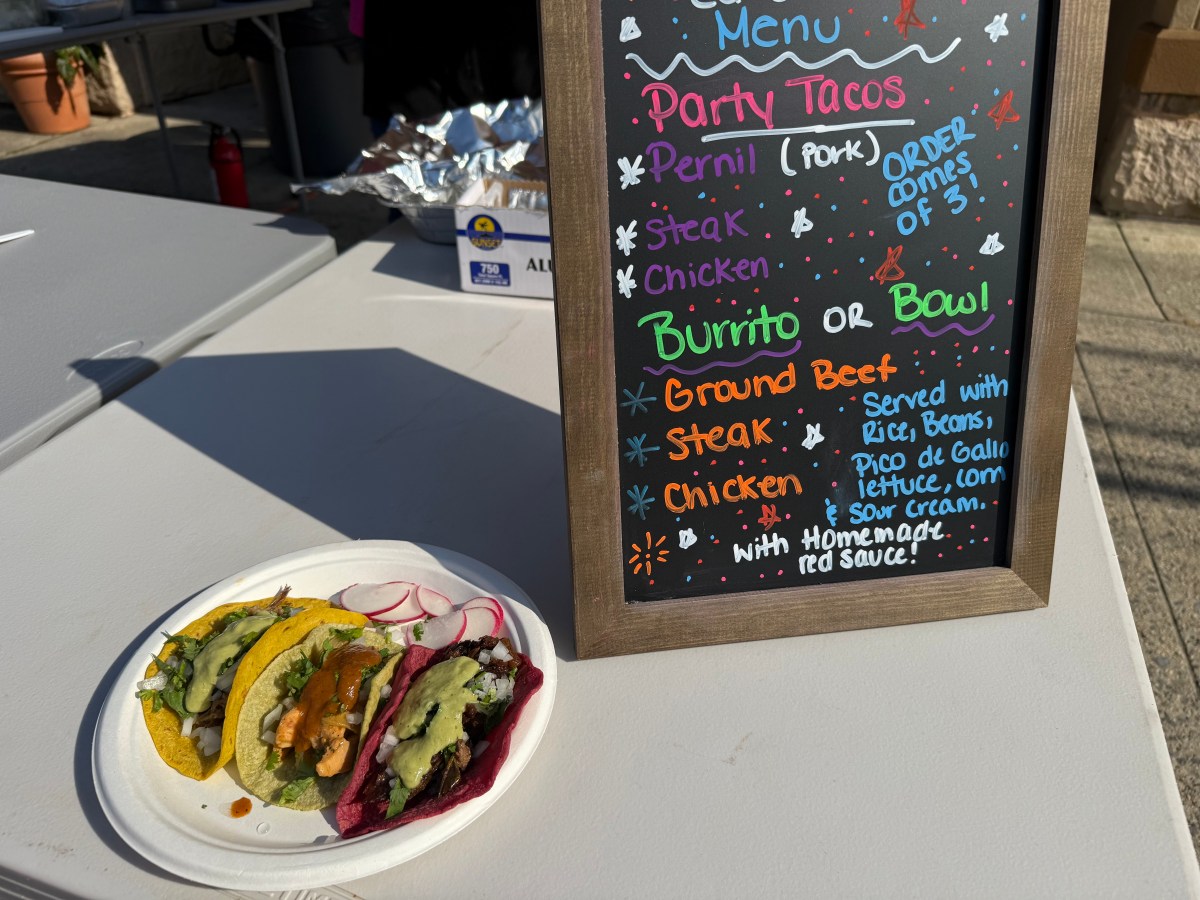 Menu
Party Tacos
Pernil (Pork)
ORDER
comes
of 3!
Steak
Chicken
Burrito OR Bowl
Ground Beef
Steak
Chicken
Served with
Rice, Beans,
Pico de Gallo
lettuce, corn
& Sour Cream.
with Homemade
red sauce!
SUNSET
750
ALU